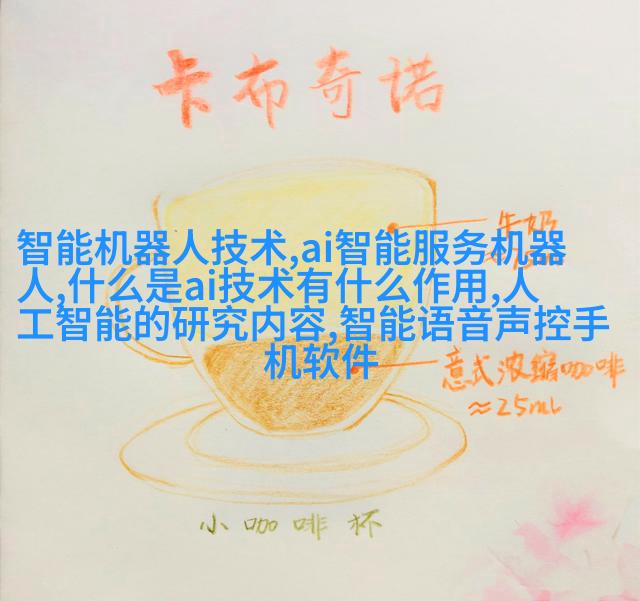 卡布奇诺
牛奶
智能机器人技术,ai智能服务机器
人,什么是ai技术有什么作用,人
工智能的研究内容,智能语音声控手
机软件
意式浓缩咖啡
≈25ml
小咖啡杯